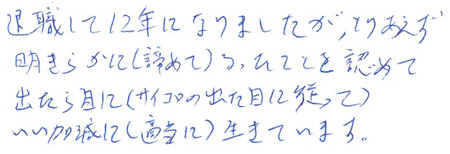 退職して12年になりましたが、とりあえず
明きらかに(諦めて)る、たことを認めて
出たら目に(サイコロの出た目に従って)
いい加減に(適当に)生きています。